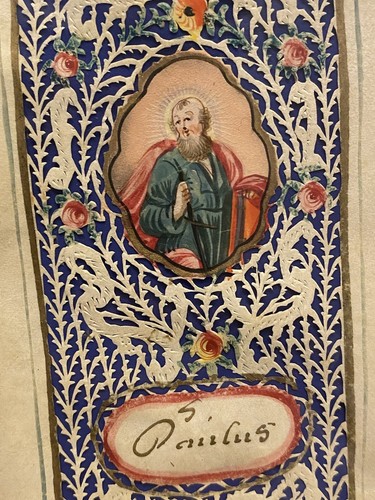 S
Paulus